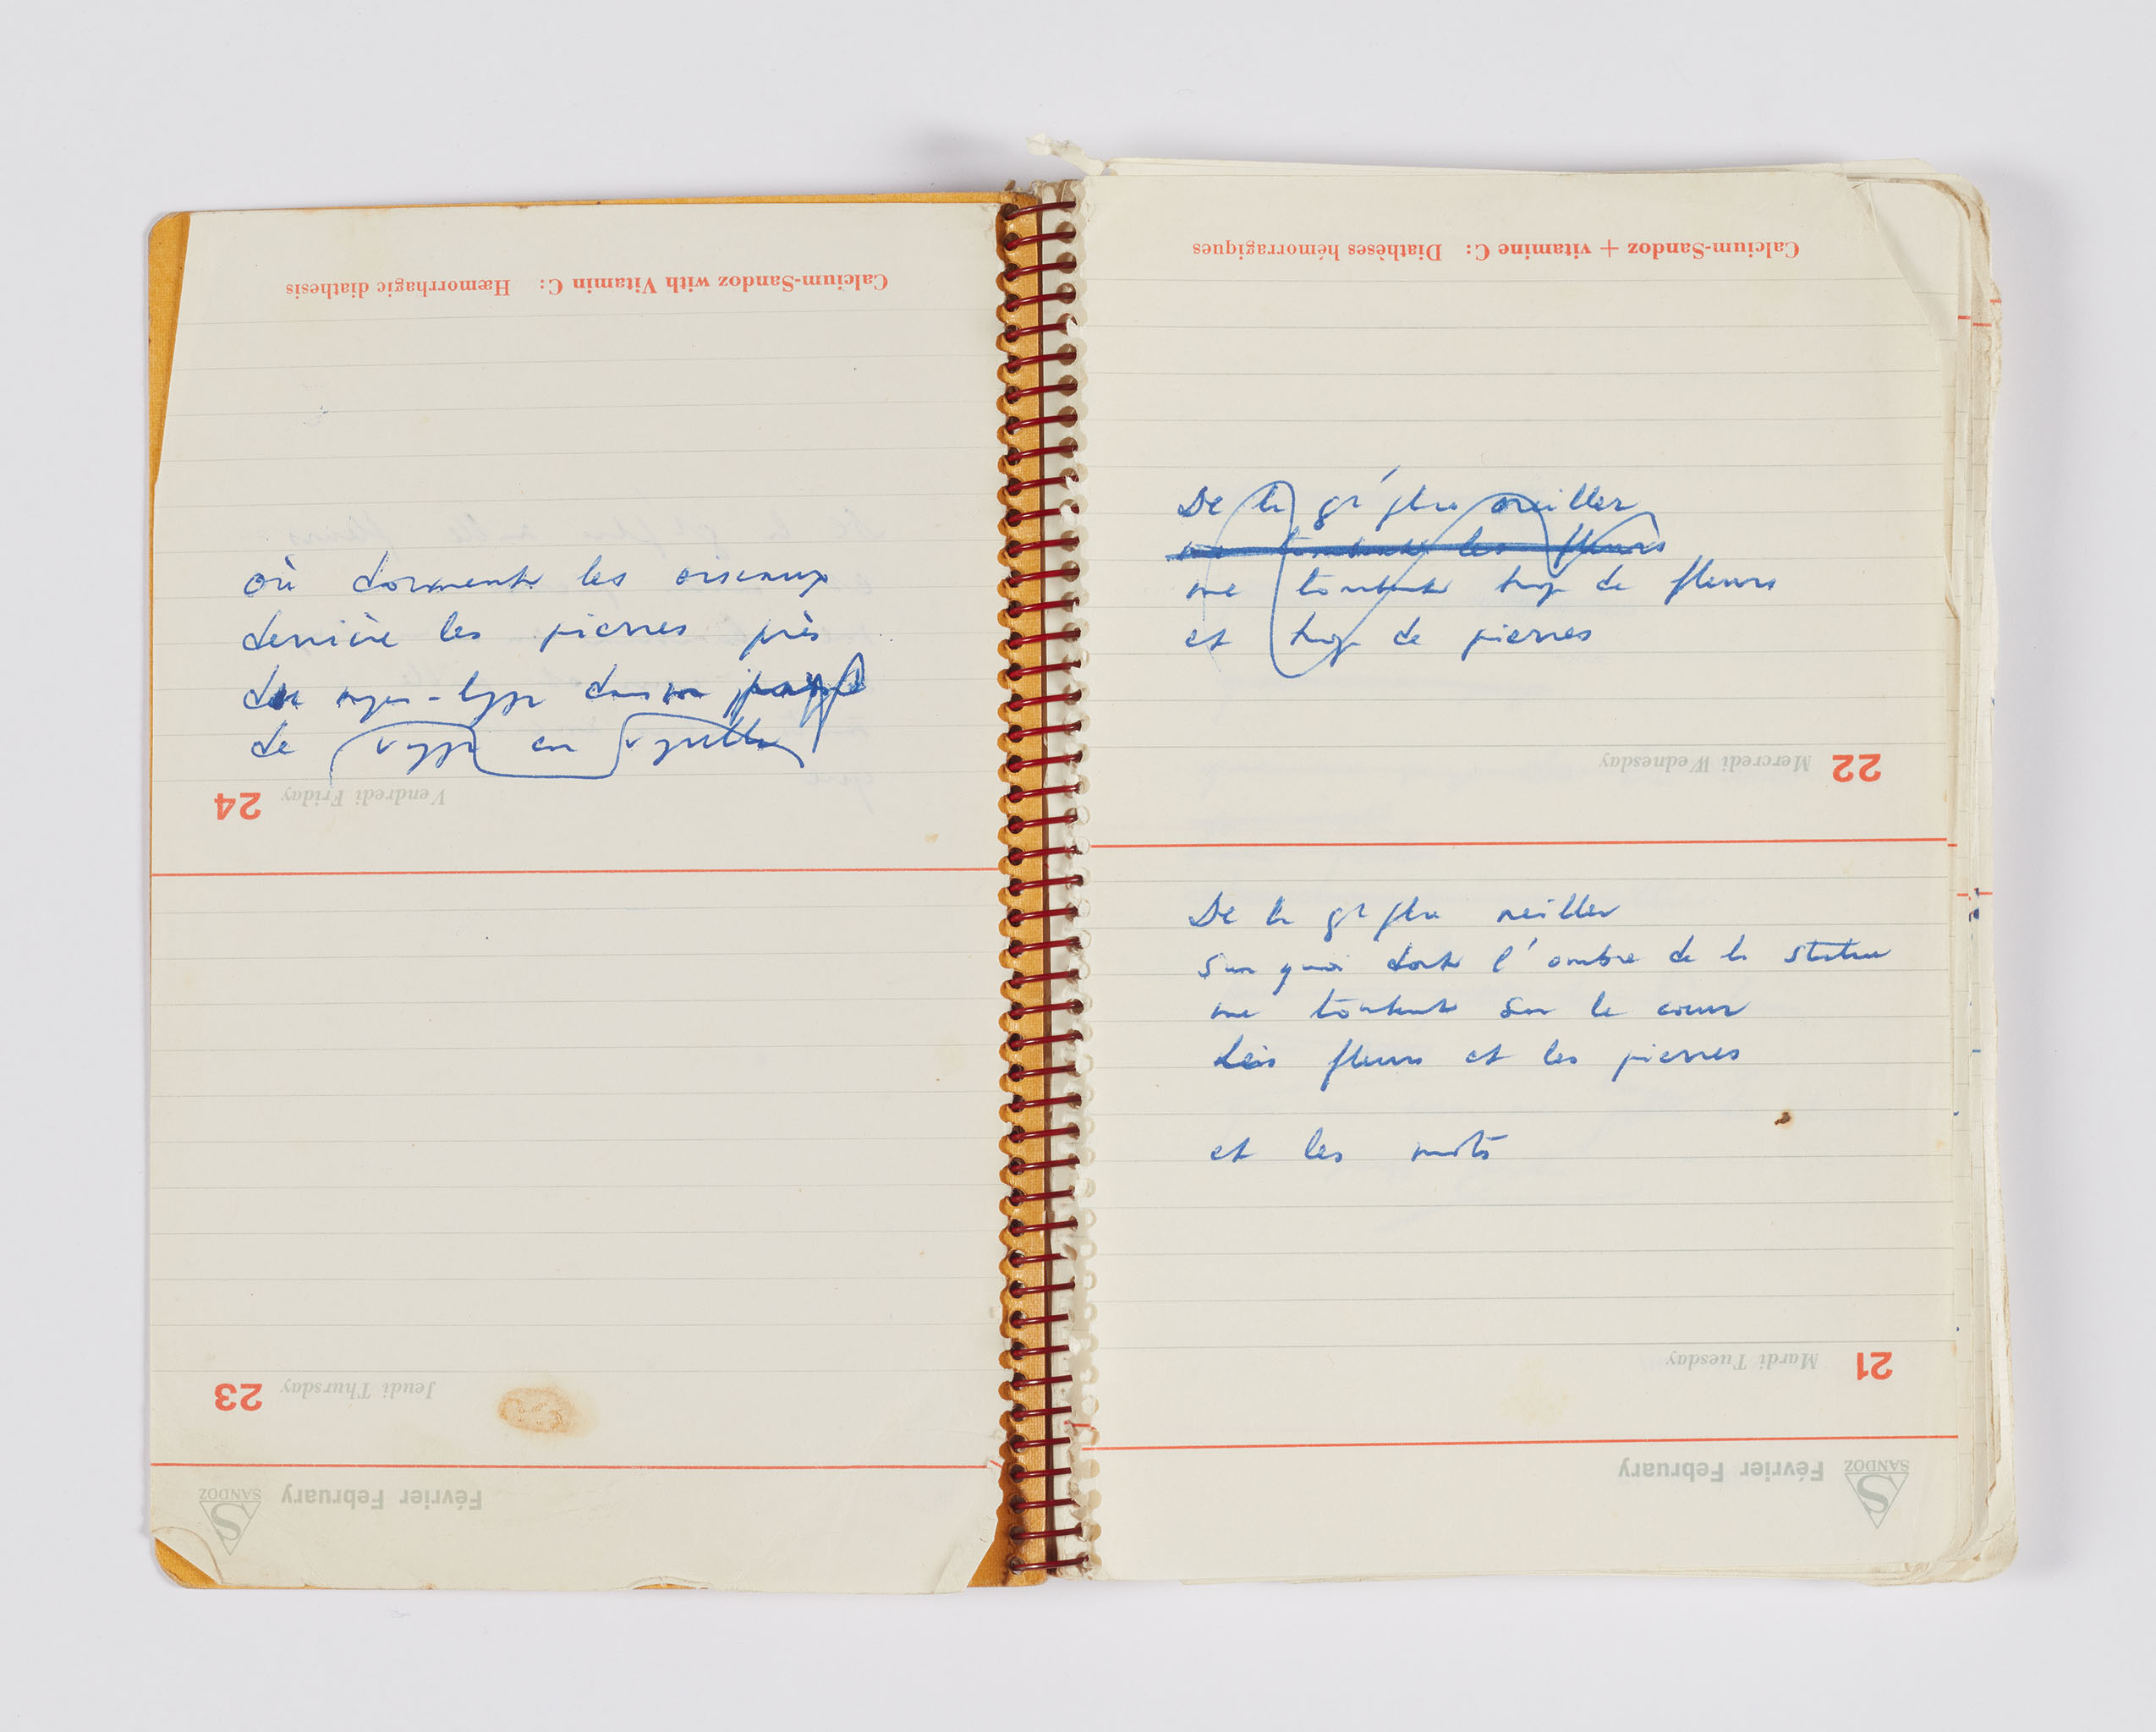 où dorment les oiseaux
derrière les pierres près
de
De la oreiller
me tombent les fleurs
me tombent trop de fleurs
et trop de pierres
De la oreiller
sur quoi dort l'ombre de la statue
me tombent sur le cœur
les fleurs et les pierres
et les mots
Calcium-Sandoz with Vitamin C: Hæmorrhagic diathesis
24 Vendredi Friday
23 Jeudi Thursday
Février February
SANDOZ
Calcium-Sandoz + vitamine C: Diathèses hémorragiques
22 Mercredi Wednesday
21 Mardi Tuesday
Février February
SANDOZ